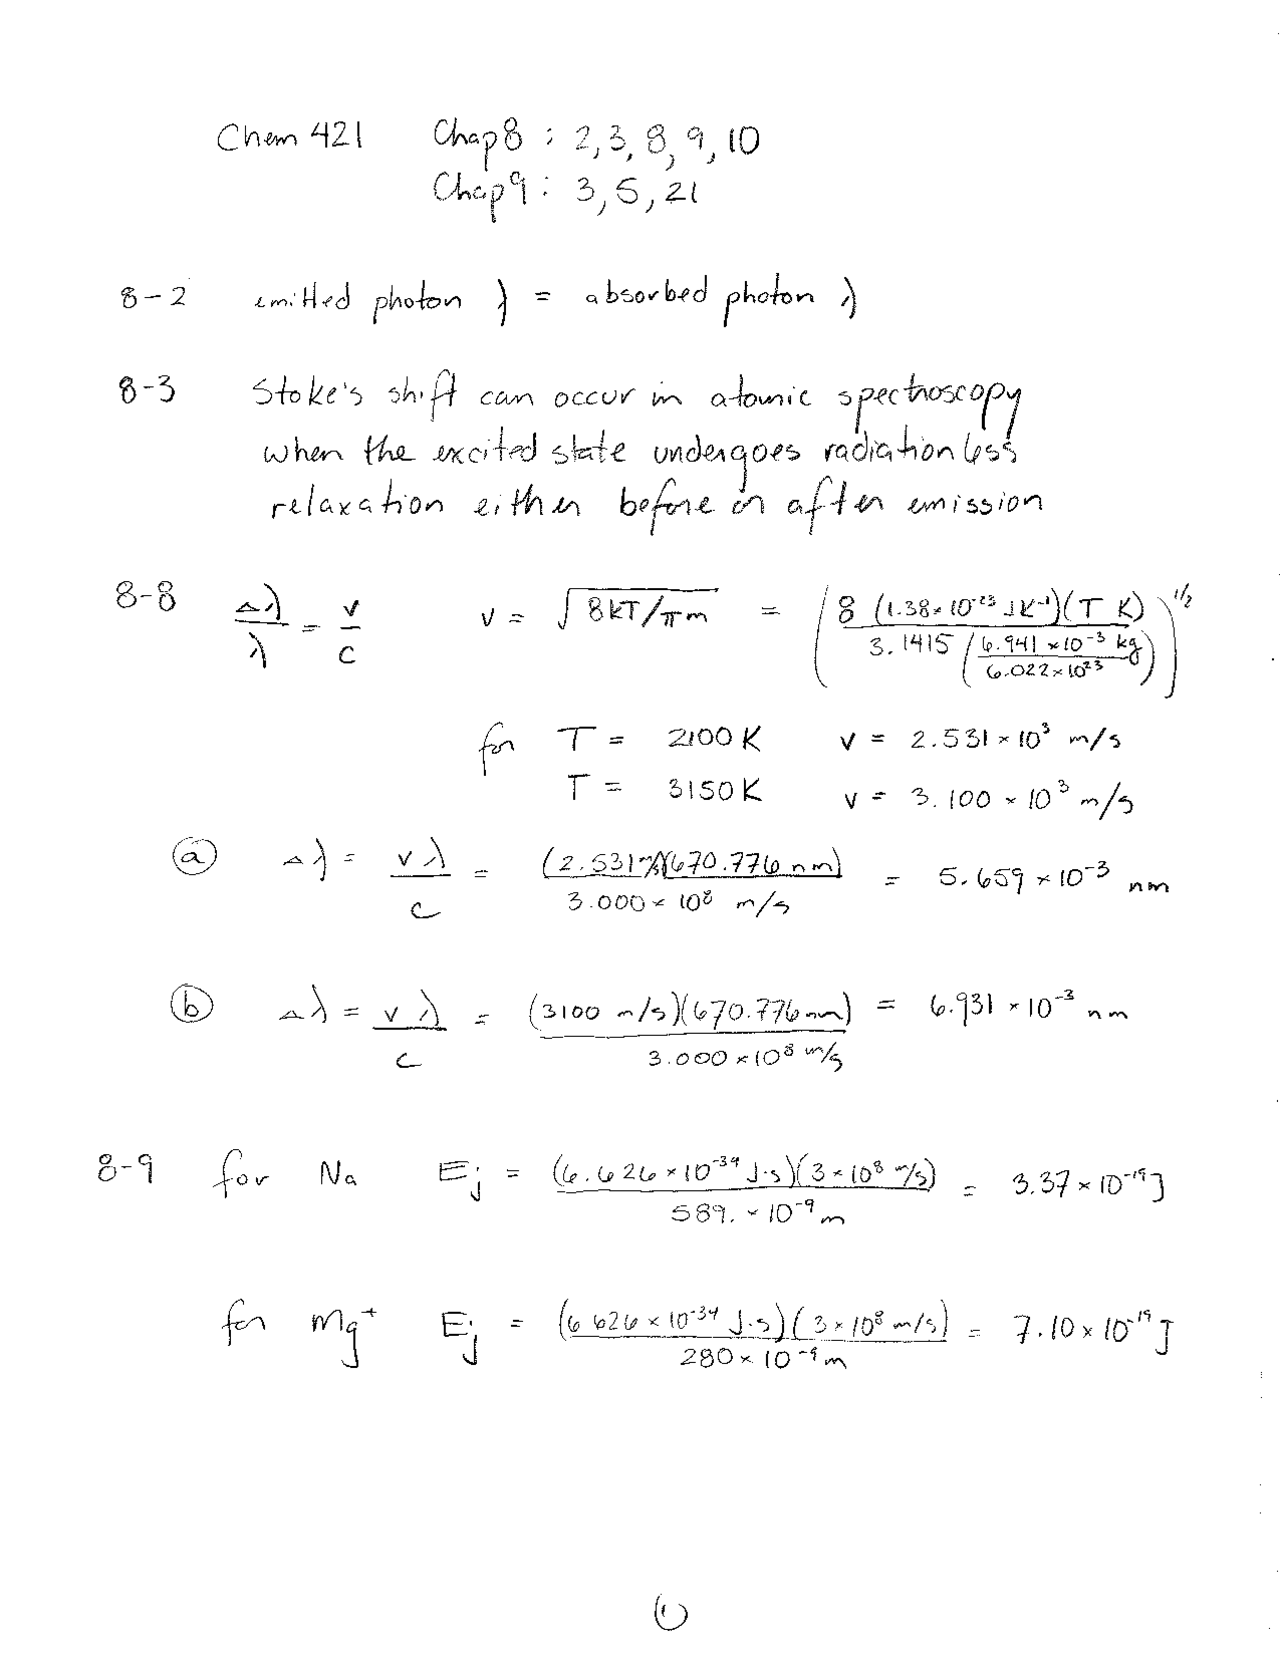 Chem 421 Chap 8 : 2, 3, 8, 9, 10
Chap 9 : 3, 5, 21
8-2 emitted photon λ = absorbed photon λ
8-3 Stoke's shift can occur in atomic spectroscopy
when the excited state undergoes radiationless
relaxation either before or after emission
8-8 Δλ/λ = v/c v = √(8kT/πm) = (8 (1.38×10⁻²³ JK⁻¹)(T K) / 3.1415 (6.941×10⁻³ kg / 6.022×10²³))^1/2
for T = 2100 K v = 2.531 × 10³ m/s
T = 3150 K v = 3.100 × 10³ m/s
(a) Δλ = vλ/c = (2.531 m/s)(670.776 nm) / 3.000 × 10⁸ m/s = 5.659 × 10⁻³ nm
(b) Δλ = vλ/c = (3100 m/s)(670.776 nm) / 3.000×10⁸ m/s = 6.931 × 10⁻³ nm
8-9 for Na Ej = (6.626×10⁻³⁴ J·s)(3×10⁸ m/s) / 589. × 10⁻⁹ m = 3.37 × 10⁻¹⁹ J
for Mg⁺ Ej = (6.626×10⁻³⁴ J·s)(3×10⁸ m/s) / 280×10⁻⁹ m = 7.10 × 10⁻¹⁹ J
(1)